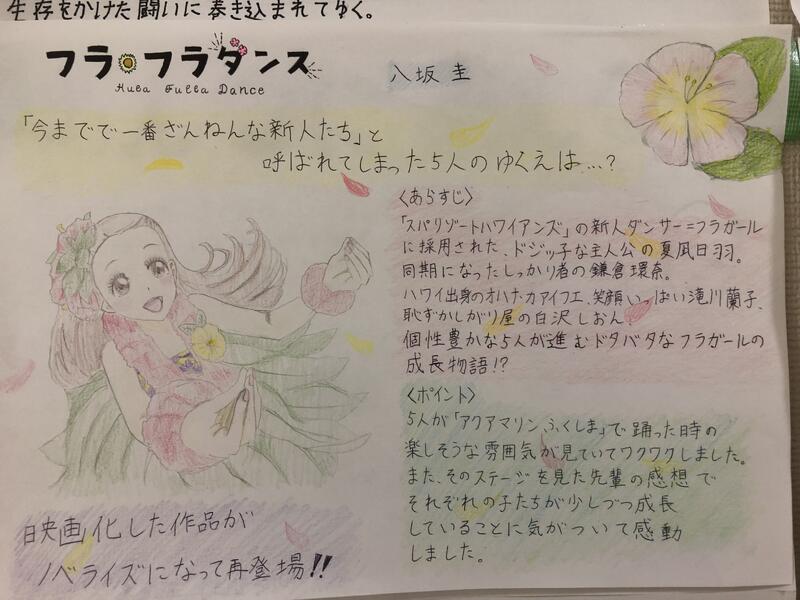 生存をかけた闘いに巻き込まれてゆく。
フラ・フラダンス
Hula Fulla Dance
八坂 圭
「今までで一番ざんねんな新人たち」と
呼ばれてしまった5人のゆくえは…?
〈あらすじ〉
「スパリゾートハワイアンズ」の新人ダンサー=フラガール
に採用された、ドジッ子な主人公の夏凪日羽。
同期になったしっかり者の鎌倉環奈。
ハワイ出身のオハナ・カアイフエ、笑顔いっぱい滝川蘭子、
恥ずかしがり屋の白沢しおん。
個性豊かな5人が進むドタバタなフラガールの
成長物語!?
〈ポイント〉
5人が「アクアマリンふくしま」で踊った時の
楽しそうな雰囲気が見ていてワクワクしました。
また、そのステージを見た先輩の感想で
それぞれの子たちが少しづつ成長
していることに気がついて感動
しました。
映画化した作品が
ノベライズになって再登場!!